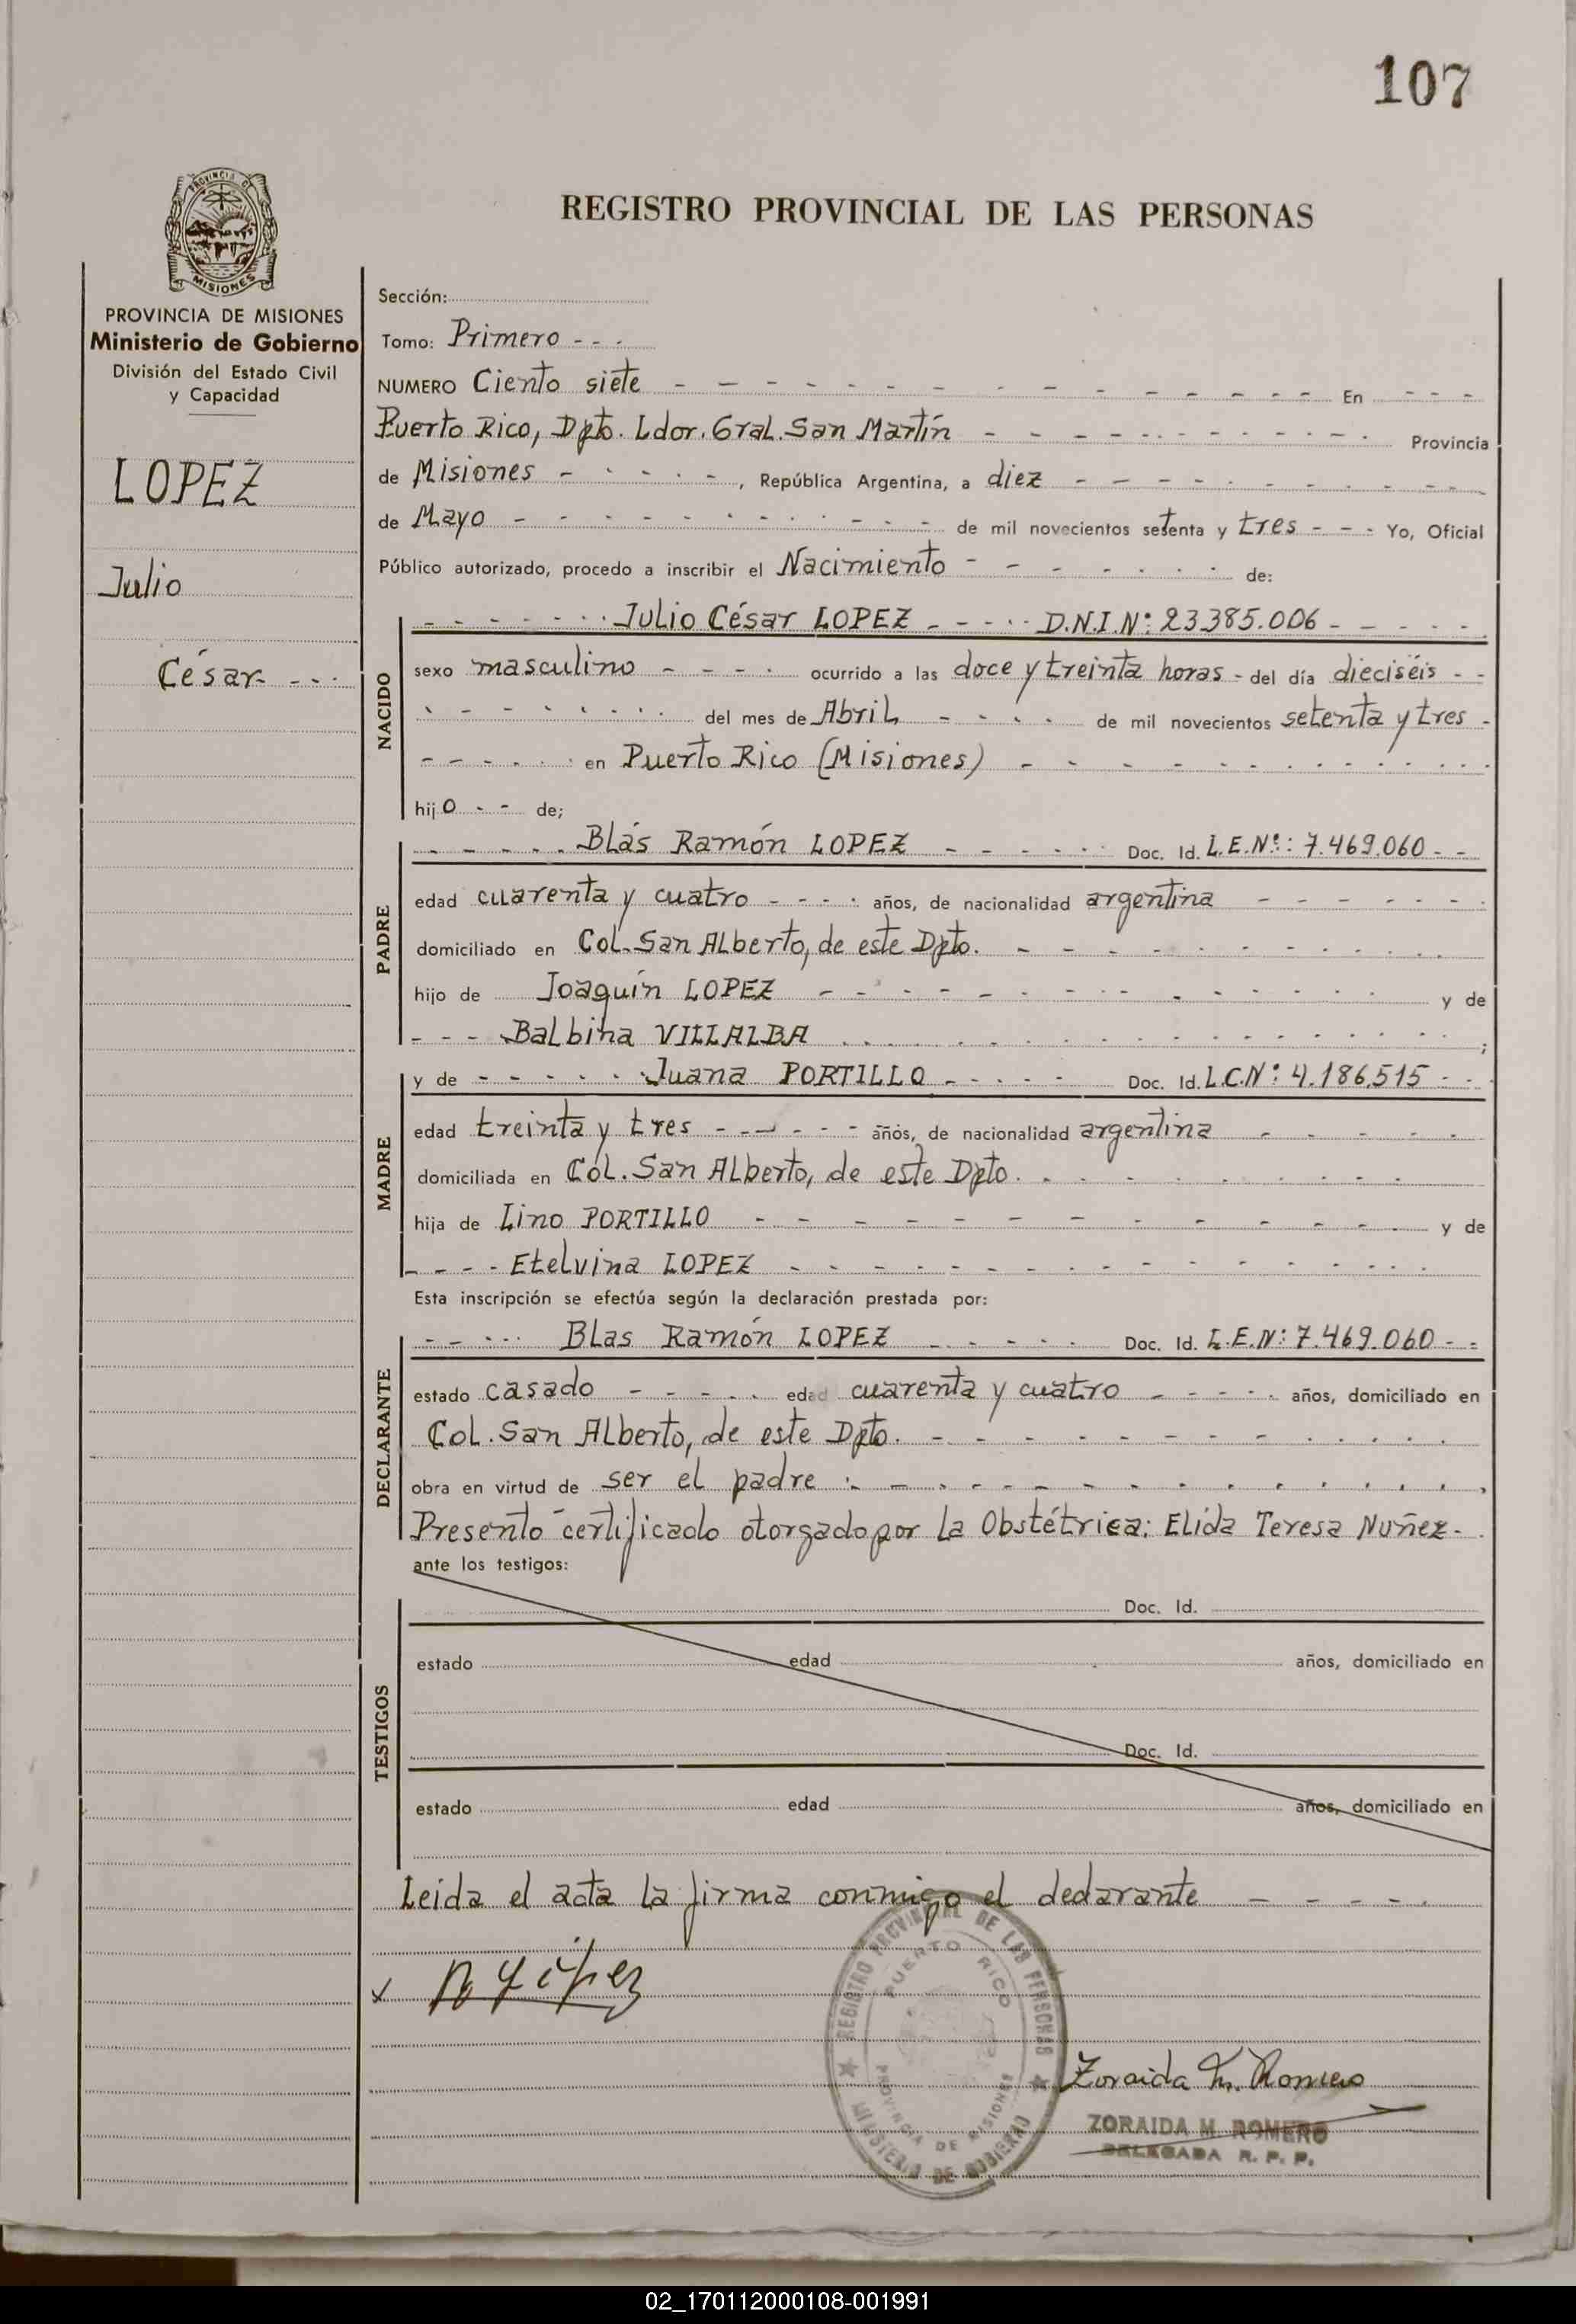 107
PROVINCIA DE MISIONES
REGISTRO PROVINCIAL DE LAS PERSONAS
PROVINCIA DE MISIONES
Ministerio de Gobierno
División del Estado Civil
y Capacidad
LOPEZ
Julio
César - - -
Sección:
Tomo: Primero - - -
NUMERO Ciento siete - - - En - - -
Puerto Rico, Dpto. Ldor. Gral. San Martín - - - Provincia
de Misiones - - - , República Argentina, a diez - - -
de Mayo - - - de mil novecientos setenta y tres - - - Yo, Oficial
Público autorizado, procedo a inscribir el Nacimiento - - - de:
NACIDO
- - - Julio César LOPEZ - - - D.N.I.Nº: 23385.006 - - -
sexo masculino - - - ocurrido a las doce y treinta horas - del día dieciséis - -
- - - del mes de Abril - - - de mil novecientos setenta y tres -
- - - en Puerto Rico (Misiones) - - -
hijo - - de;
PADRE
- - - Blás Ramón LOPEZ - - - Doc. Id. L.E.Nº: 7.469.060 - -
edad cuarenta y cuatro - - - años, de nacionalidad argentina - - -
domiciliado en Col. San Alberto, de este Dpto. - - -
hijo de Joaquín LOPEZ - - - y de
- - - Balbina VILLALBA - - - ;
MADRE
y de - - - Juana PORTILLO - - - Doc. Id. L.C.Nº: 4.186.515 - -
edad treinta y tres - - - años, de nacionalidad argentina - - -
domiciliada en Col. San Alberto, de este Dpto. - - -
hija de Lino PORTILLO - - - y de
- - - Etelvina LOPEZ - - -
Esta inscripción se efectúa según la declaración prestada por:
DECLARANTE
- - - Blas Ramón LOPEZ - - - Doc. Id. L.E.N: 7.469.060 - -
estado casado - - - edad cuarenta y cuatro - - - años, domiciliado en
Col. San Alberto, de este Dpto. - - -
obra en virtud de ser el padre : - - - ,
Presentó certificado otorgado por la Obstétrica: Elida Teresa Nuñez -
ante los testigos:
TESTIGOS
Doc. Id.
estado edad años, domiciliado en
Doc. Id.
estado edad años, domiciliado en
Leida el acta la firma conmigo el declarante - - -
REGISTRO PROVINCIAL DE LAS PERSONAS
PUERTO RICO
PROVINCIA DE MISIONES
MINISTERIO DE GOBIERNO
Zoraida M. Romero
ZORAIDA M. ROMERO
DELEGADA R. P. P.
02_170112000108-001991